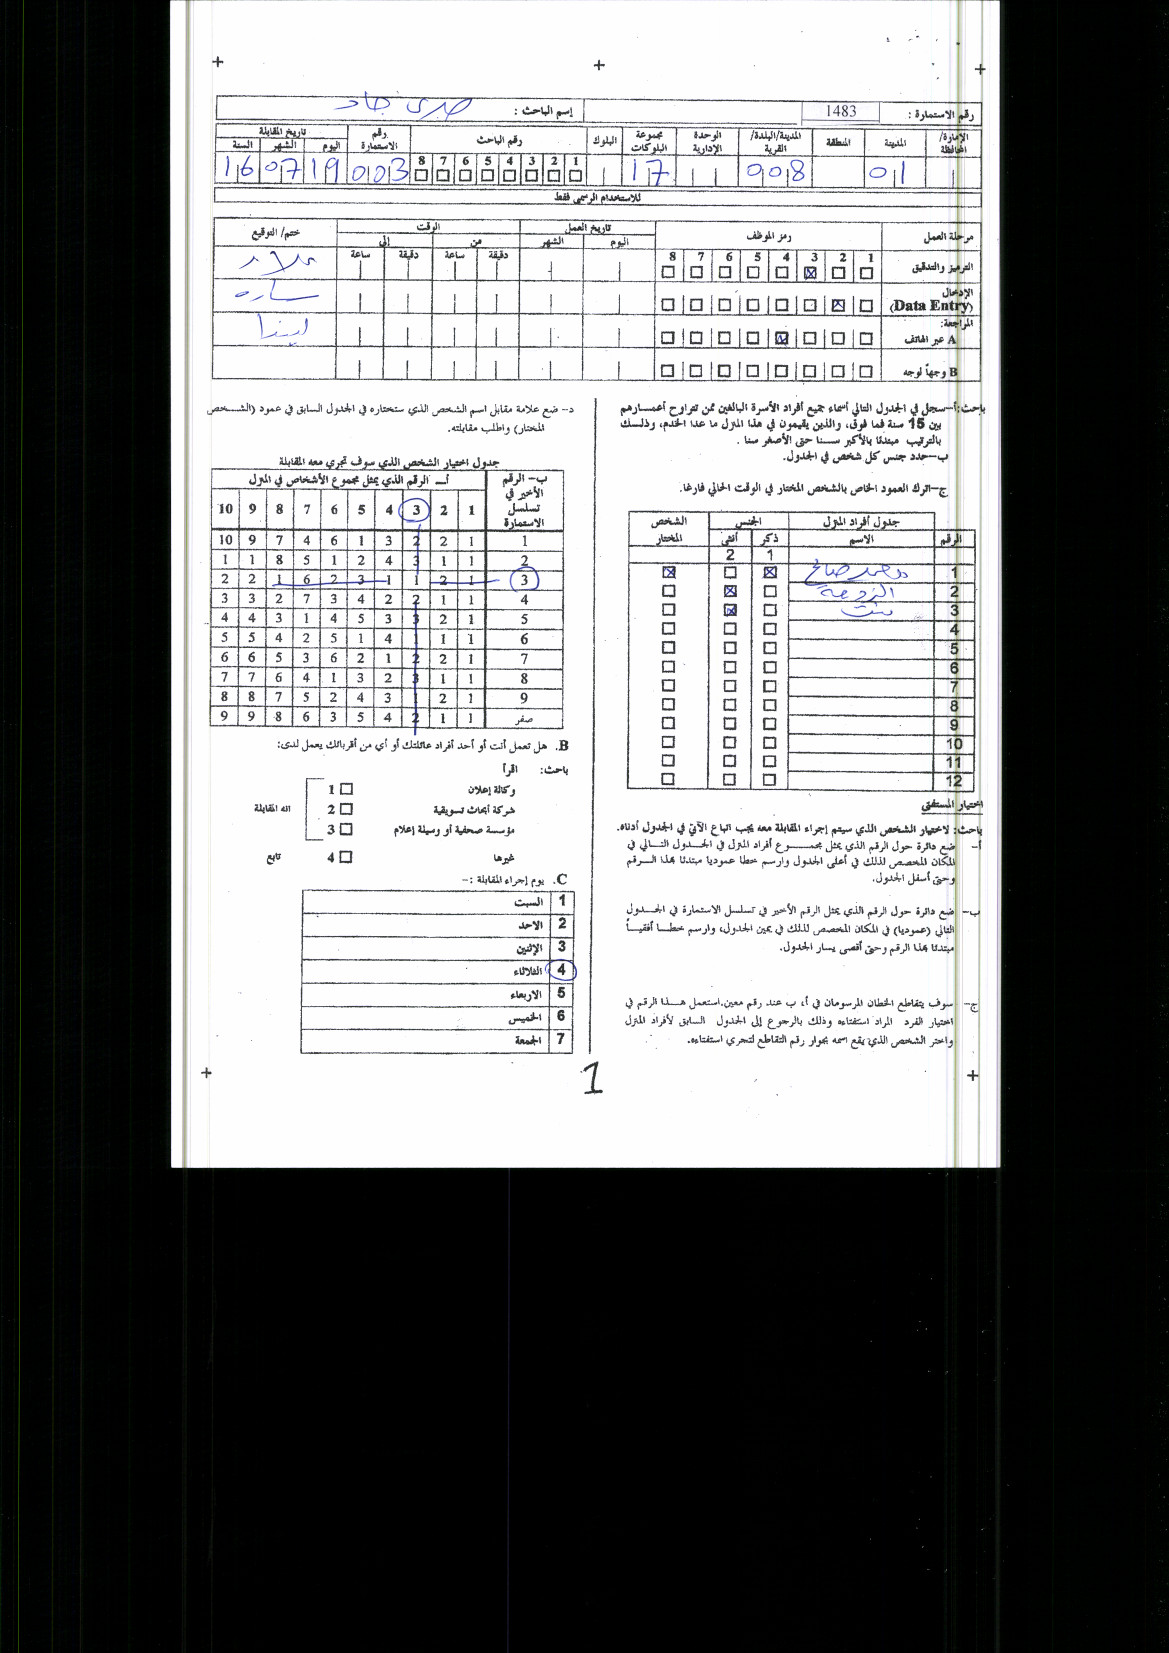 رقم الاستمارة : 1483 إسم الباحث :
الإمارة/ محافظة المدينة المنطقة المدينة/البلدة/ القرية الوحدة الإدارية مجموعة البلوكات البلوك رقم الباحث رقم الاستمارة تاريخ المقابلة
اليوم الشهر السنة
1 2 3 4 5 6 7 8
01 008 17 003 19 07 16
للاستخدام الرسمي فقط
مرحلة العمل رمز الموظف تاريخ العمل الوقت ختم/ التوقيع
اليوم الشهر من إلى
1 2 3 4 5 6 7 8 دقيقة ساعة دقيقة ساعة
الترميز والتدقيق
الإدخال (Data Entry) ساره
المراجعة:
A عبر الهاتف ليندا
B وجهاً لوجه
باحث: أ-سجل في الجدول التالي أسماء جميع أفراد الأسرة البالغين ممن تتراوح أعمـارهم
بين 15 سنة فما فوق، والذين يقيمون في هذا المنزل ما عدا الخدم، وذلـك
بالترتيب مبتدئا بالأكبر سـنا حتى الأصغر سنا .
ب-حدد جنس كل شخص في الجدول.
ج-اترك العمود الخاص بالشخص المختار في الوقت الحالي فارغا.
جدول أفراد المنزل الجنس الشخص
الرقم الاسم ذكر أنثى المختار
1 2
1 محمد صالح
2 الزوجة
3 بنت
4
5
6
7
8
9
10
11
12
اختيار المستفتى
باحث: لاختيار الشخص الذي سيتم إجراء المقابلة معه يجب اتباع الآتي في الجدول أدناه.
أ- ضع دائرة حول الرقم الذي يمثل مجمـوع أفراد المنزل في الجـدول التـالي في
المكان المخصص لذلك في أعلى الجدول وارسم خطا عموديا مبتدئا بهذا الـرقم
وحتى أسفل الجدول.
ب- ضع دائرة حول الرقم الذي يمثل الرقم الأخير في تسلسل الاستمارة في الجـدول
التالي (عموديا) في المكان المخصص لذلك في يمين الجدول، وارسم خطـا أفقيـاً
مبتدئا بهذا الرقم وحتى أقصى يسار الجدول.
ج- سوف يتقاطع الخطان المرسومان في أ، ب عند رقم معين.استعمل هـذا الرقم في
اختيار الفرد المراد استفتاءه وذلك بالرجوع إلى الجدول السابق لأفراد المنزل
واختر الشخص الذي يقع اسمه بجوار رقم التقاطع لتجري استفتاءه.
د- ضع علامة مقابل اسم الشخص الذي ستختاره في الجدول السابق في عمود (الشـخص
المختار) واطلب مقابلته.
جدول اختيار الشخص الذي سوف تجري معه المقابلة
ب- الرقم الأخير في تسلسل الاستمارة أـ الرقم الذي يمثل مجموع الأشخاص في المنزل
1 2 3 4 5 6 7 8 9 10
1 1 2 2 3 1 6 4 7 9 10
2 1 1 3 4 2 1 5 8 1 1
3 1 2 1 1 3 2 6 1 2 2
4 1 1 2 2 4 3 7 2 3 3
5 1 2 3 3 5 4 1 3 4 4
6 1 1 1 4 1 5 2 4 5 5
7 1 2 2 1 2 6 3 5 6 6
8 1 1 3 2 3 1 4 6 7 7
9 1 2 1 3 4 2 5 7 8 8
صفر 1 1 2 4 5 3 6 8 9 9
B. هل تعمل أنت أو أحد أفراد عائلتك أو أي من أقربائك يعمل لدى:
باحث: اقرأ
وكالة إعلان 1
شركة أبحاث تسويقية 2 انه المقابلة
مؤسسة صحفية أو وسيلة إعلام 3
غيرها 4 تابع
C. يوم إجراء المقابلة :-
1 السبت
2 الاحد
3 الإثنين
4 الثلاثاء
5 الاربعاء
6 الخميس
7 الجمعة
1